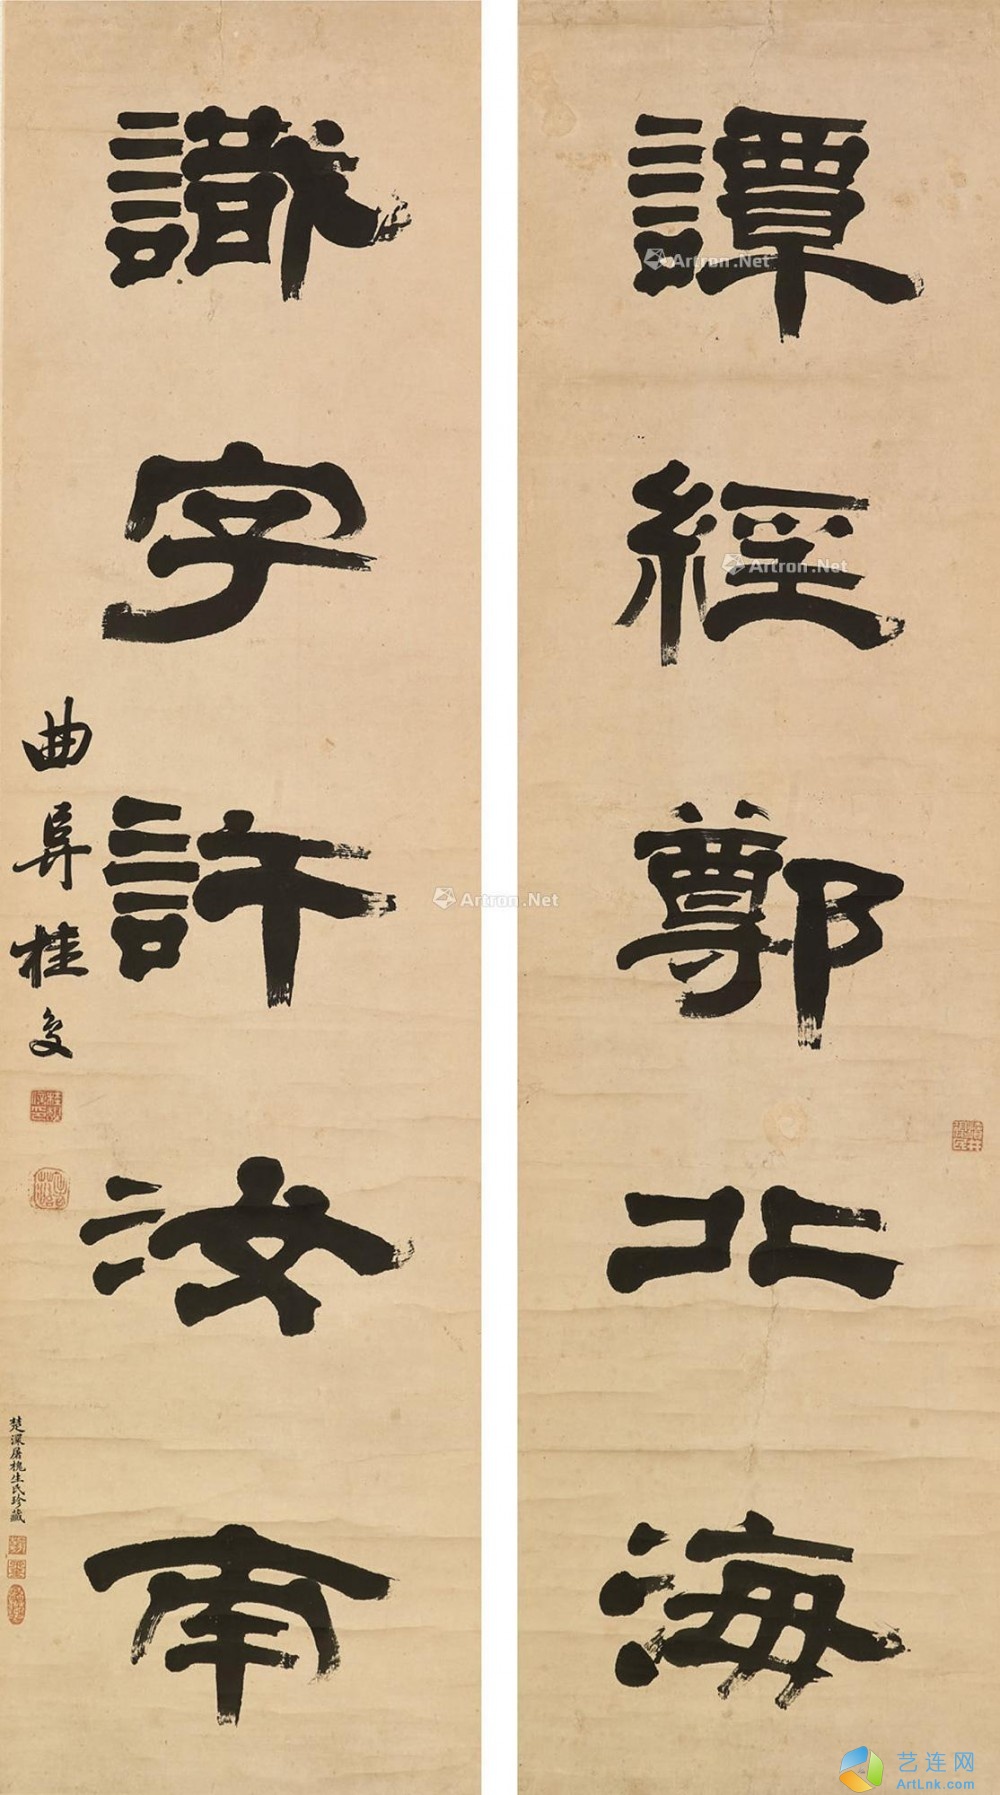 譚經鄭北海
識字許汝南
曲阜桂复
楚深槐生氏珍藏
Artron.Net
Artron.Net
Artron.Net
艺连网
ArtLnk.com